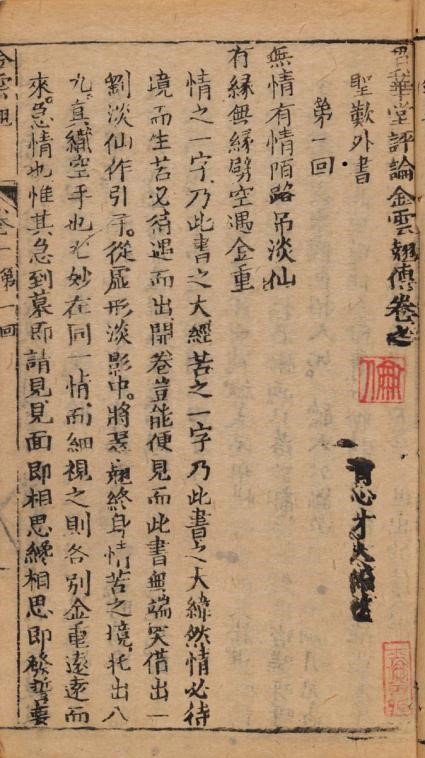 貫華堂評論金雲翹傳卷之
聖歎外書
青心才人編次
第一回
無情有情陌路吊淡仙
有緣無緣劈空遇金重
情之一字乃此書之大經苦之一字乃此書之大緯然情必待
境而生苦必待遇而出開卷豈能便見而此書無端突借出一
劉淡仙作引子從虛形淡影中將翠翹終身情苦之境托出八
九真織空手也尤妙在同一情而細視之則各別金重遠遠而
來急情也惟其急到慕即請見見面即相思纔相思即發誓要
金雲翹
卷一 第一回